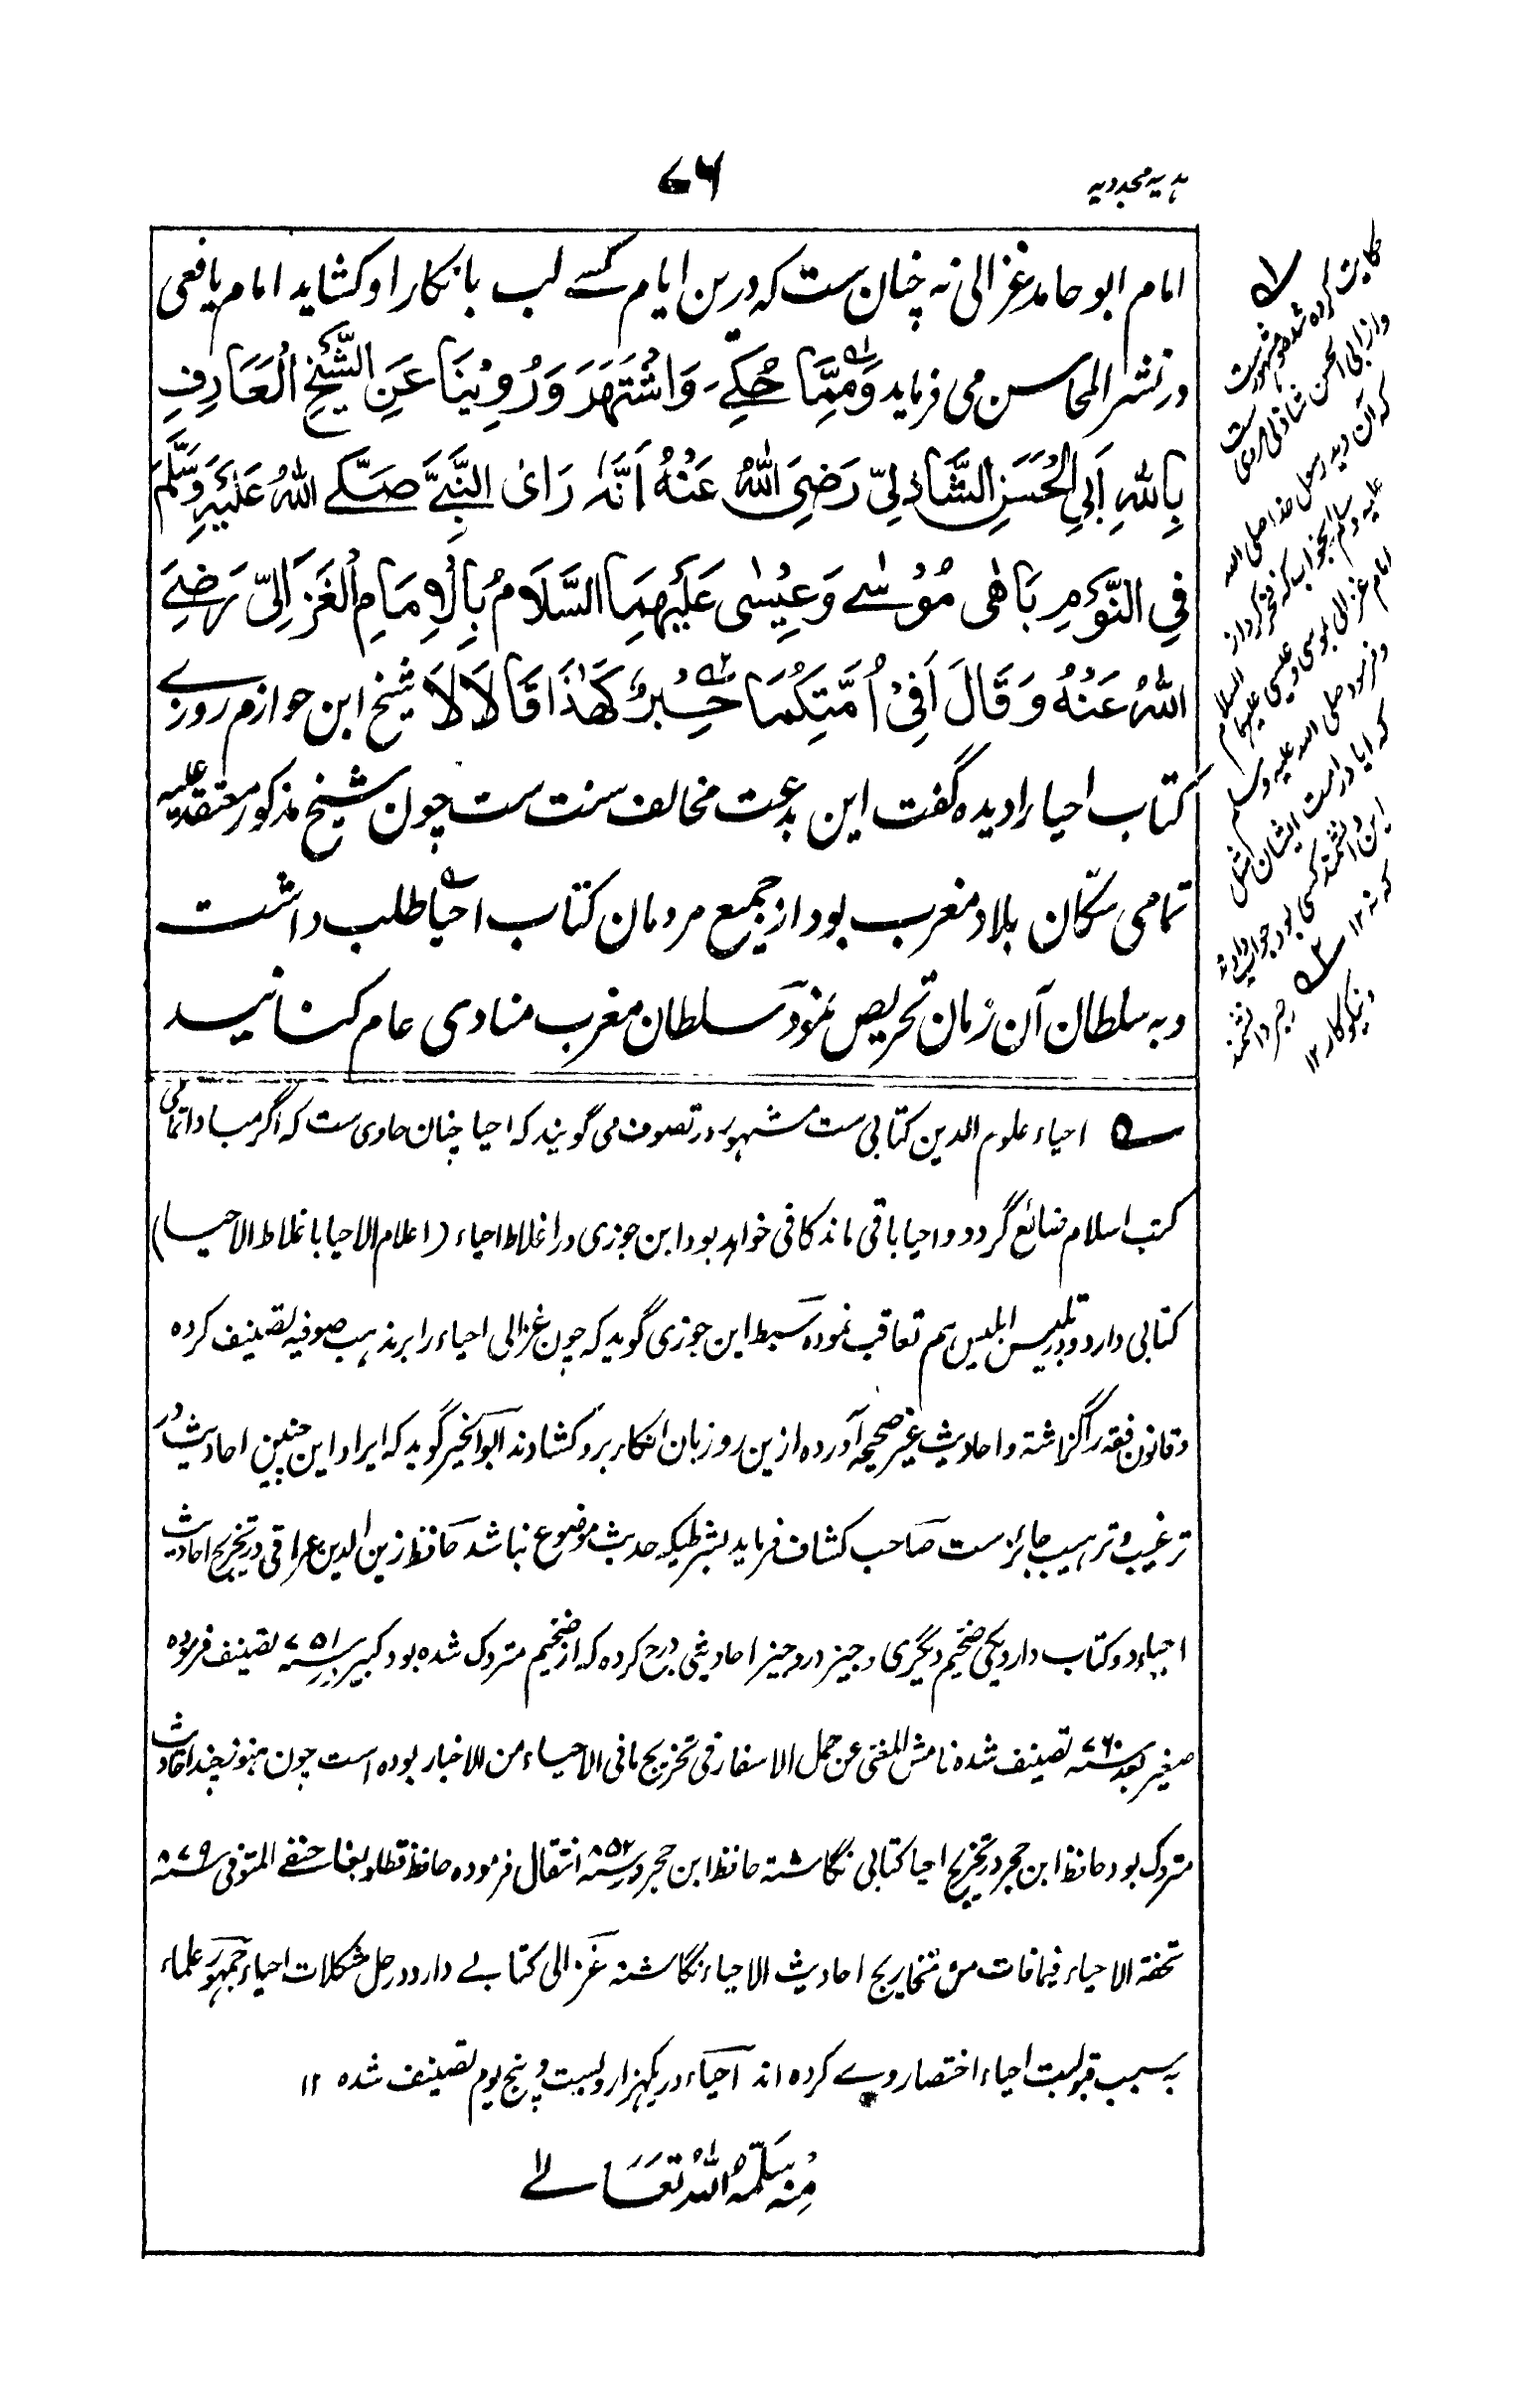 هدیه مجددیه
۷۶
امام ابو حامد غزالی نه چنان ست که درین ایام کسے لب بانکار او کشاید امام یافعی
در نشر المحاسن می فرماید وَمِمَّا حُكِےَ وَاشْتَهَرَ وَرُوِيْنَا عَنِ الشَّيْخِ الْعَارِفِ
بِاللهِ اَبِي الْحَسَنِ الشَّاذِلِيّ رَضِيَ اللهُ عَنْهُ اَنَّهٗ رَاىٰ النَّبِيَّ صَلَّے اللهُ عَلَيْهِ وَسَلَّمَ
فِي النَّوْمِ بَاهٰى مُوْسٰے وَعِيْسٰى عَلَيْهِمَا السَّلَامُ بِالْاِمَامِ الْغَزَالِيّ رَضِےَ
اللهُ عَنْهُ وَقَالَ اَفِيْ اُمَّتِكُمَا حِبْرٌ كَهٰذَا قَالَا لَا شیخ ابن حوازم روزے
کتاب احیا را دیده گفت این بدعت مخالف سنت ست چون شیخ مذکور معتقد علیه
تمامی سکّان بلاد مغرب بود از جمیع مردمان کتاب احیا طلب داشت
و به سلطان آن زمان تحریص نمود سلطان مغرب منادی عام کنانید
حکایت کرده شد و مشهورست
و از ابی الحسن شاذلی مروی ست
که آن دید رسول خدا صلی الله
علیه وسلم را بخواب که فخر کرد از
امام غزالی بموسی و عیسی علیهما السلام
و فرمود صلی الله علیه وسلم
که ایا در امت ایشان مثل
این دانشمند کسی بود جواب دادند
که نه ۱۲
حبر دانشمند
و نیکوکار ۱۲
احیاء علوم الدین کتابی ست مشهور در تصوف می گویند که احیا چنان حاوی ست که اگر مبادا تمامی
کتب اسلام ضائع گردد و احیا باقی ماند کافی خواهد بود ابن جوزی در اغلاط احیاء (اعلام الاحیا باغلاط الاحیا)
کتابی دارد و در تلبیس ابلیس هم تعاقب نموده سبط ابن جوزی گوید که چون غزالی احیاء را بر مذهب صوفیه تصنیف کرده
و قانون فقه را گزاشته و احادیث غیر صحیحه آورده ازین رو زبان انکار برو کشادند ابو الخیر گوید که ایراد این چنین احادیث در
ترغیب و ترهیب جائز ست صاحب کشاف فرماید بشرطیکه حدیث موضوع نباشد حافظ زین الدین عراقی در تخریج احادیث
احیاء دو کتاب دارد یکی ضخیم دیگری وجیز در وجیز احادیثی درج کرده که از ضخیم متروک شده بود کبیر بسنه ۷۵۱ تصنیف فرموده
صغیر بعد سنه ۷۶۰ تصنیف شده نامش المغنی عن حمل الاسفار فی تخریج ما فی الاحیاء من الاخبار بوده است چون هنوز چند احادیث
متروک بود حافظ ابن حجر در تخریج احیا کتابی نگاشته حافظ ابن حجر در سنه ۸۵۲ انتقال فرموده حافظ قطلوبغا حنفے المتوفی سنه ۸۷۹
تحفة الاحیاء فیما فات من تخاریج احادیث الاحیاء نگاشته غزالی کتابے دارد در حل مشکلات احیاء جمهور علماء
به سبب قبولیت احیاء اختصار وے کرده اند احیاء در یکهزار و بیست و پنج یوم تصنیف شده ۱۲
مِنْه سَلَّمَهُ اللهُ تَعَالےٰ